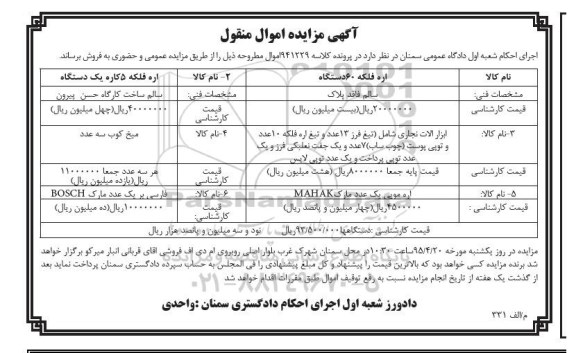 آگهی مزایده اموال منقول
اجرای احکام شعبه اول دادگاه عمومی سمنان در نظر دارد در پرونده کلاسه ۹۴۱۲۲۹اموال مطروحه ذیل را از طریق مزایده عمومی و حضوری به فروش برساند.
نام کالا اره فلکه ۶۰دستگاه ۲- نام کالا اره فلکه ۵کاره یک دستگاه
مشخصات فنی: سالم فاقد پلاک مشخصات فنی: سالم ساخت کارگاه حسن پیرون
قیمت کارشناسی ۲۰۰۰۰۰۰۰ریال(بیست میلیون ریال) قیمت کارشناسی ۴۰۰۰۰۰۰۰ریال(چهل میلیون ریال)
۳-نام کالا: ابزار الات نجاری شامل (تیغ فرز ۱۳عدد و تیغ اره فلکه ۱۰عدد و توپی پوست (چوب ساب)۷عدد و یک جفت نعلبکی فرز و یک عدد توپی پرداخت و یک عدد توپی لایس ۴-نام کالا: میخ کوب سه عدد
قیمت کارشناسی قیمت پایه جمعا ۸۰۰۰۰۰۰ریال (هشت میلیون ریال) قیمت کارشناسی هر سه عدد جمعا ۱۱۰۰۰۰۰۰ ریال(یازده میلیون ریال)
۵- نام کالا: اره مویی یک عدد مارک MAHAK ۶-نام کالا: فارسی بر یک عدد مارک BOSCH
قیمت کارشناسی : ۴۵۰۰۰۰۰ریال(چهار میلیون و پانصد ریال) قیمت کارشناسی: ۱۰۰۰۰۰۰۰ریال(ده میلیون ریال)
قیمت کارشناسی :دستگاهها۹۳/۵۰۰/۰۰۰ریال نود و سه میلیون و پانصد هزار ریال
مزایده در روز یکشنبه مورخه ۹۵/۴/۲۰ساعت ۱۰:۳۰در محل سمنان شهرک غرب بلوار اصلی روبروی ام دی اف فروشی اقای قربانی انبار میرکو برگزار خواهد
شد برنده مزایده کسی خواهد بود که بالاترین قیمت را پیشنهاد و کل مبلغ پیشنهادی را فی المجلس به حساب سپرده دادگستری سمنان پرداخت نماید بعد
از گذشت یک هفته از تاریخ انجام مزایده نسبت به رفع توقیف اموال طبق مقررات اقدام خواهد شد
دادورز شعبه اول اجرای احکام دادگستری سمنان :واحدی
م/الف ۳۳۱